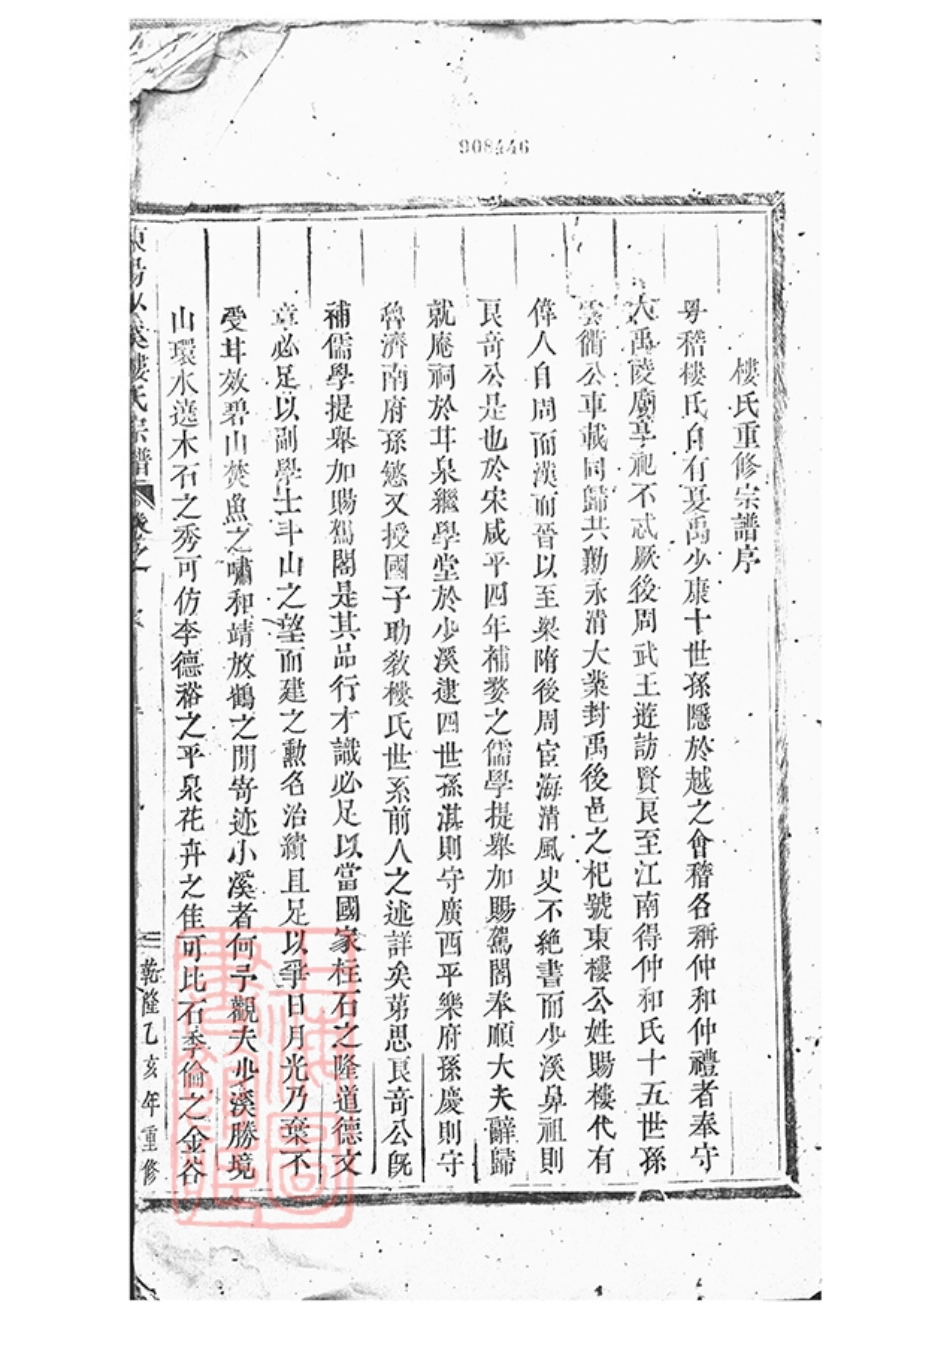 908446
樓氏重修宗譜序
粤稽樓氏自有夏禹少康十世孫隱於越之會稽名稱仲和仲禮者奉守
大禹陵廟享祀不忒厥後周武王遊訪賢良至江南得仲和氏十五世孫
雲衢公車載同歸共勷永淸大業封禹後邑之杞號東樓公姓賜樓代有
偉人自周而漢而晉以至梁隋後周宦海清風史不絶書而少溪鼻祖則
良竒公是也於宋咸平四年補婺之儒學提舉加賜駕閣奉順大夫辭歸
就庵祠於甘泉繼學堂於少溪逮四世孫淇則守廣西平樂府孫慶則守
魯濟南府孫愸又授國子助教樓氏世系前人之述詳矣苐思良竒公旣
補儒學提舉加賜駕閣是其品行才識必足以當國家柱石之隆道德文
章必足以副學士斗山之望而建之勳名治績且足以爭日月光乃棄不
受甘效碧山焚魚之嘯和靖放鶴之閒寄迹小溪者何予觀夫少溪勝境
山環水遶木石之秀可仿李德裕之平泉花卉之佳可比石季倫之金谷
樓氏宗譜 卷之一
二
乾隆乙亥年重修